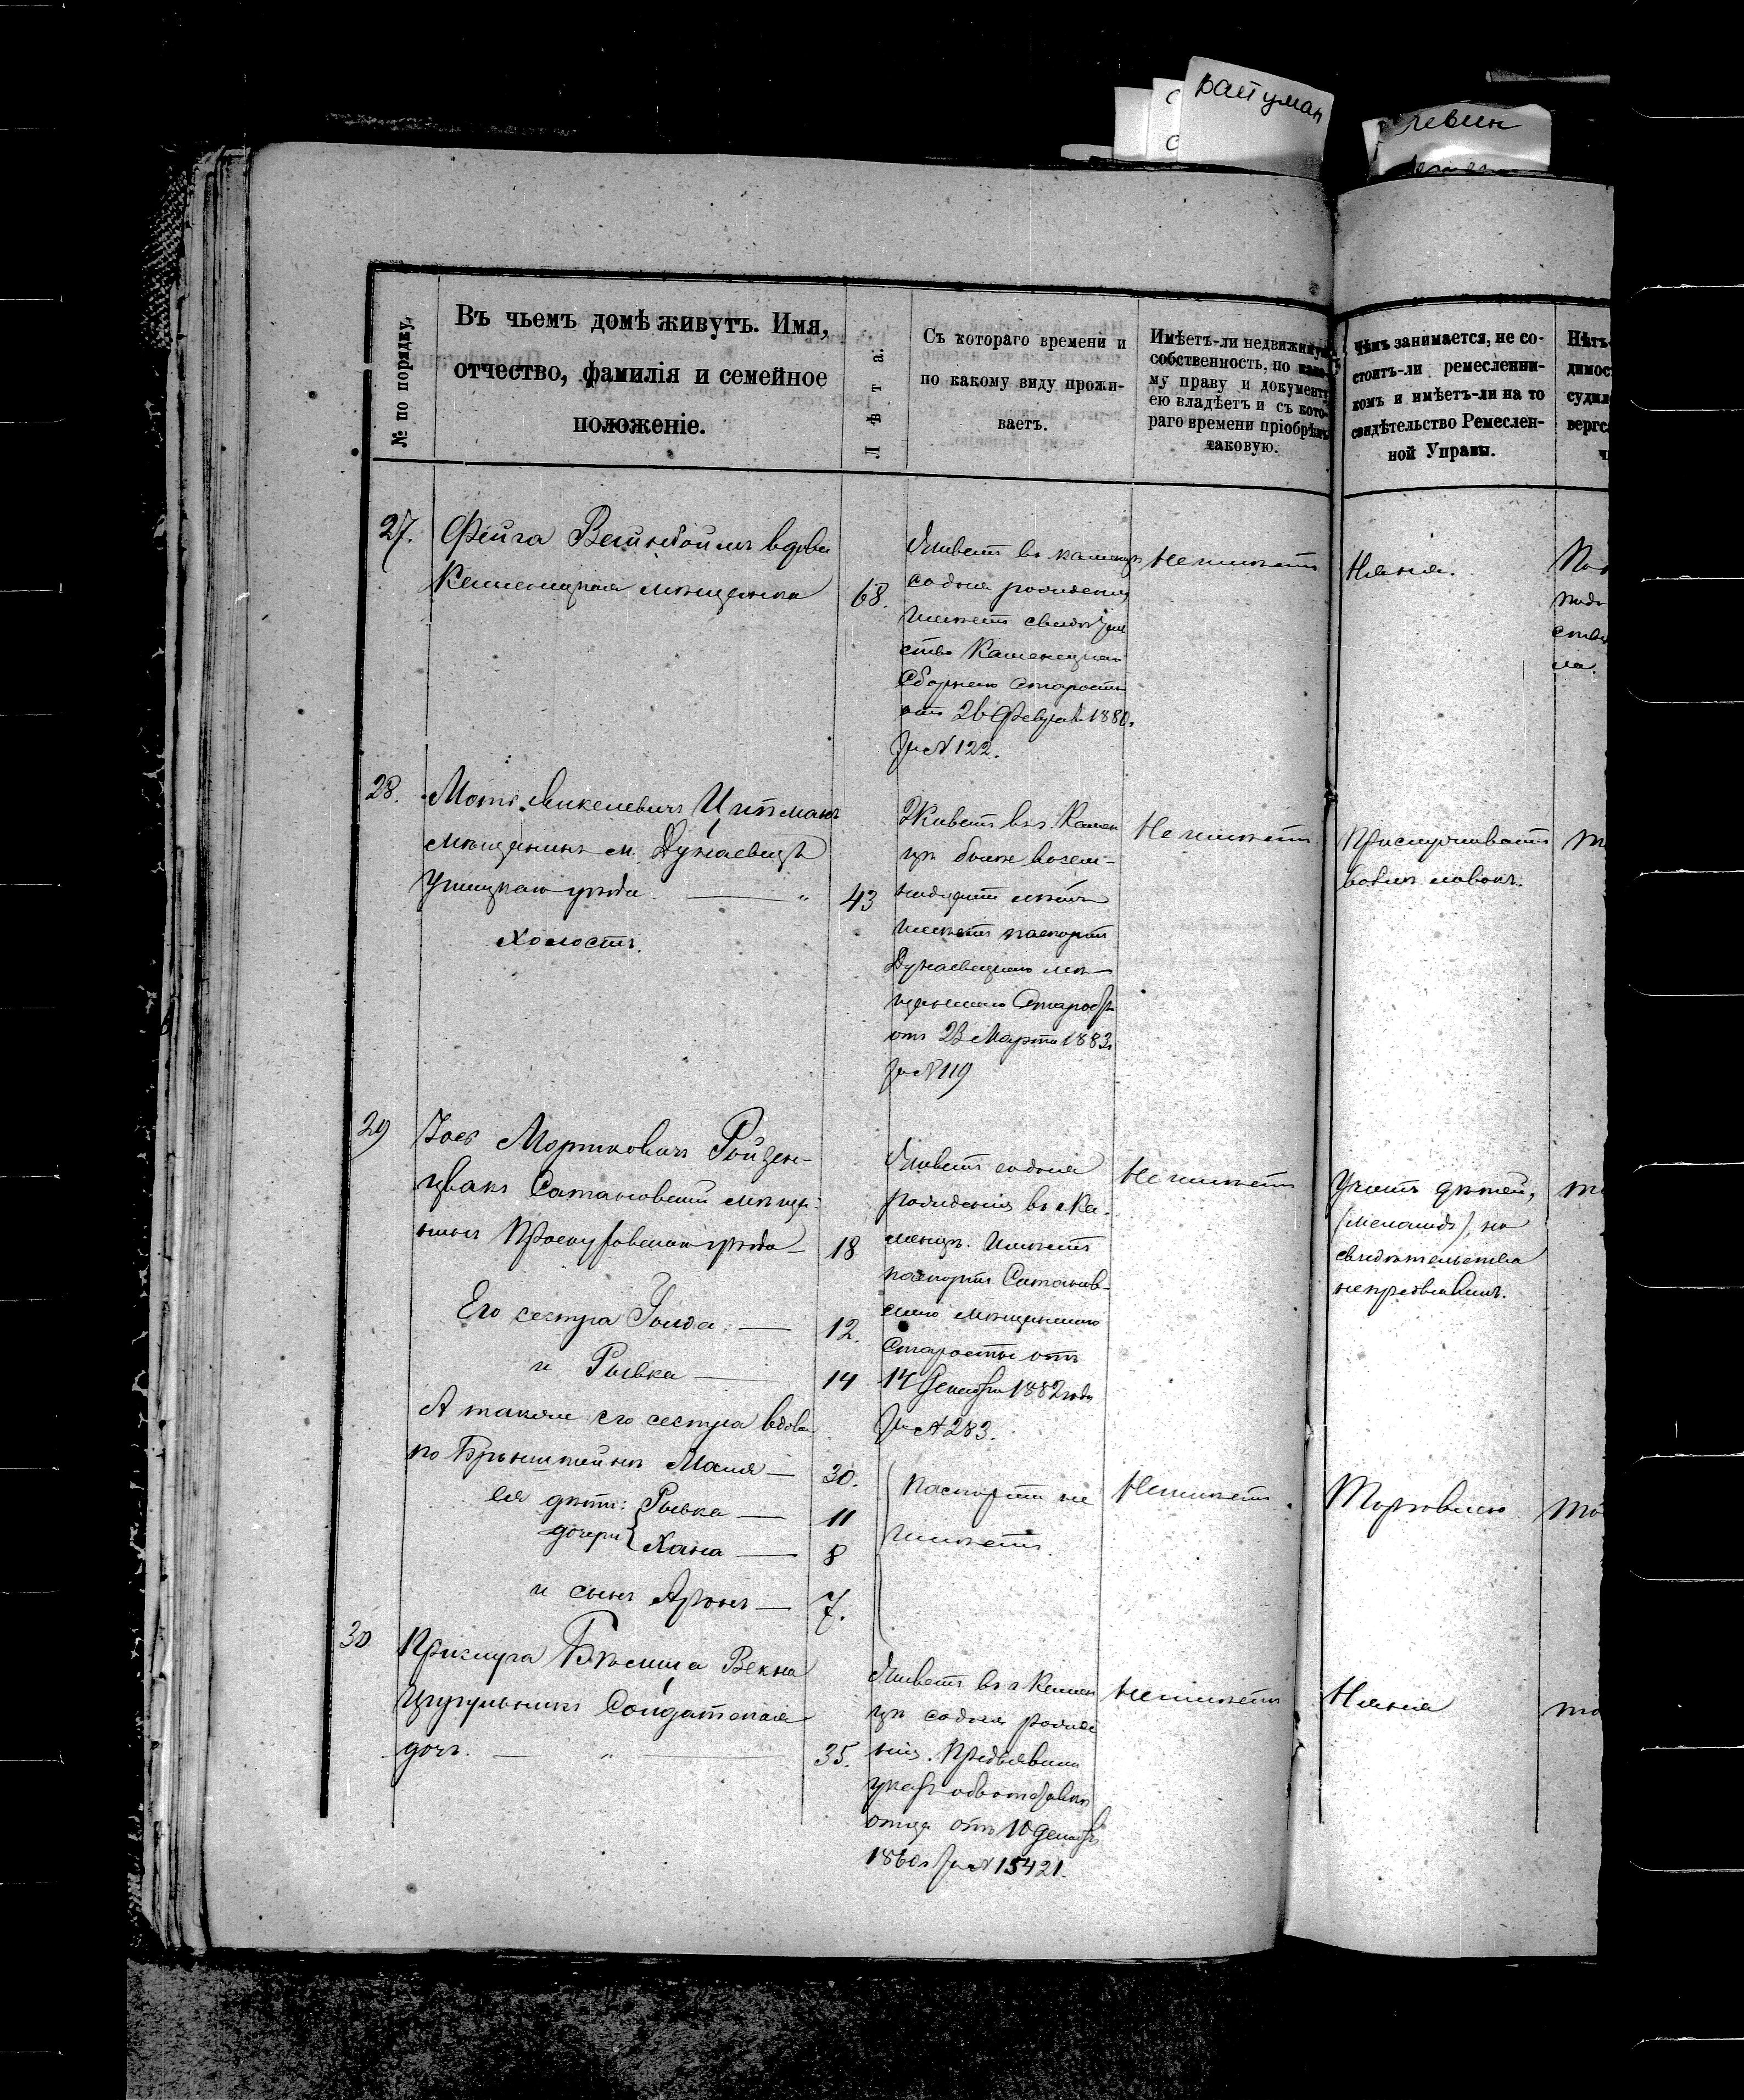 Райтман
Левин
№ по порядку.
Въ чьемъ домѣ живутъ. Имя,
отчество, фамилія и семейное
положеніе.
Лѣта.
Съ котораго времени и
по какому виду прожи-
ваетъ.
Имѣетъ-ли недвижимую
собственность, по како-
му праву и документу
ею владѣетъ и съ кото-
раго времени пріобрѣлъ
таковую.
Чѣмъ занимается, не со-
стоитъ-ли ремесленни-
комъ и имѣетъ-ли на то
свидѣтельство Ремеслен-
ной Управы.
Нѣтъ
димос
судил
вергс
27.
Фейга Вейнбоймъ вдова
Каменецкая мѣщанка
68.
Живетъ въ Каменцѣ
со дня рожденія
имѣетъ свидѣтель
ство Каменецкаго
Сборнаго Старосты
отъ 26 Февраля 1880г.
за № 122.
Не имѣетъ
Няня.
28.
Мото Микелевичъ Цитманъ
мѣщанинъ м. Дунаевецъ
Ушицкаго уѣзда
Холостъ.
43
Живетъ въ г. Камен
цѣ болѣе восем-
надцати лѣтъ
имѣетъ паспортъ
Дунаевецкаго мѣ-
щанскаго Старосты
отъ 23 Марта 1883г.
за № 119
Не имѣетъ
Прислуживаетъ
29
Іось Мортковичъ Ройзен-
цвакъ Сатановскій мѣща-
нинъ Проскуровскаго уѣзда
18
Его сестра Голда
12.
и Рывка
14
А также его сестра вдова
по Брынштейнъ Маля
30.
ея дѣти: Рывка
11
дочери Хана
8
и сынъ Аронъ
7.
Живетъ со дня
рожденія въ г. Ка-
менцѣ. Имѣетъ
паспортъ Сатанов-
скаго мѣщанскаго
Старосты отъ
14 Декабря 1882 года
за № 283.
Паспорта не
имѣетъ.
Не имѣетъ
Не имѣетъ.
Учитъ дѣтей,
(меламедъ), но
свидѣтельства
непредъявилъ.
Торговлею
30
Прислуга Бѣсиша Векна
Цирульникъ Солдатская
дочь.
35.
Живетъ въ г. Камен
цѣ со дня рожде
нія. Предъявила
указъ объ отставкѣ
отца отъ 10 Декабря
1860г. за № 15421.
Не имѣетъ
Няня